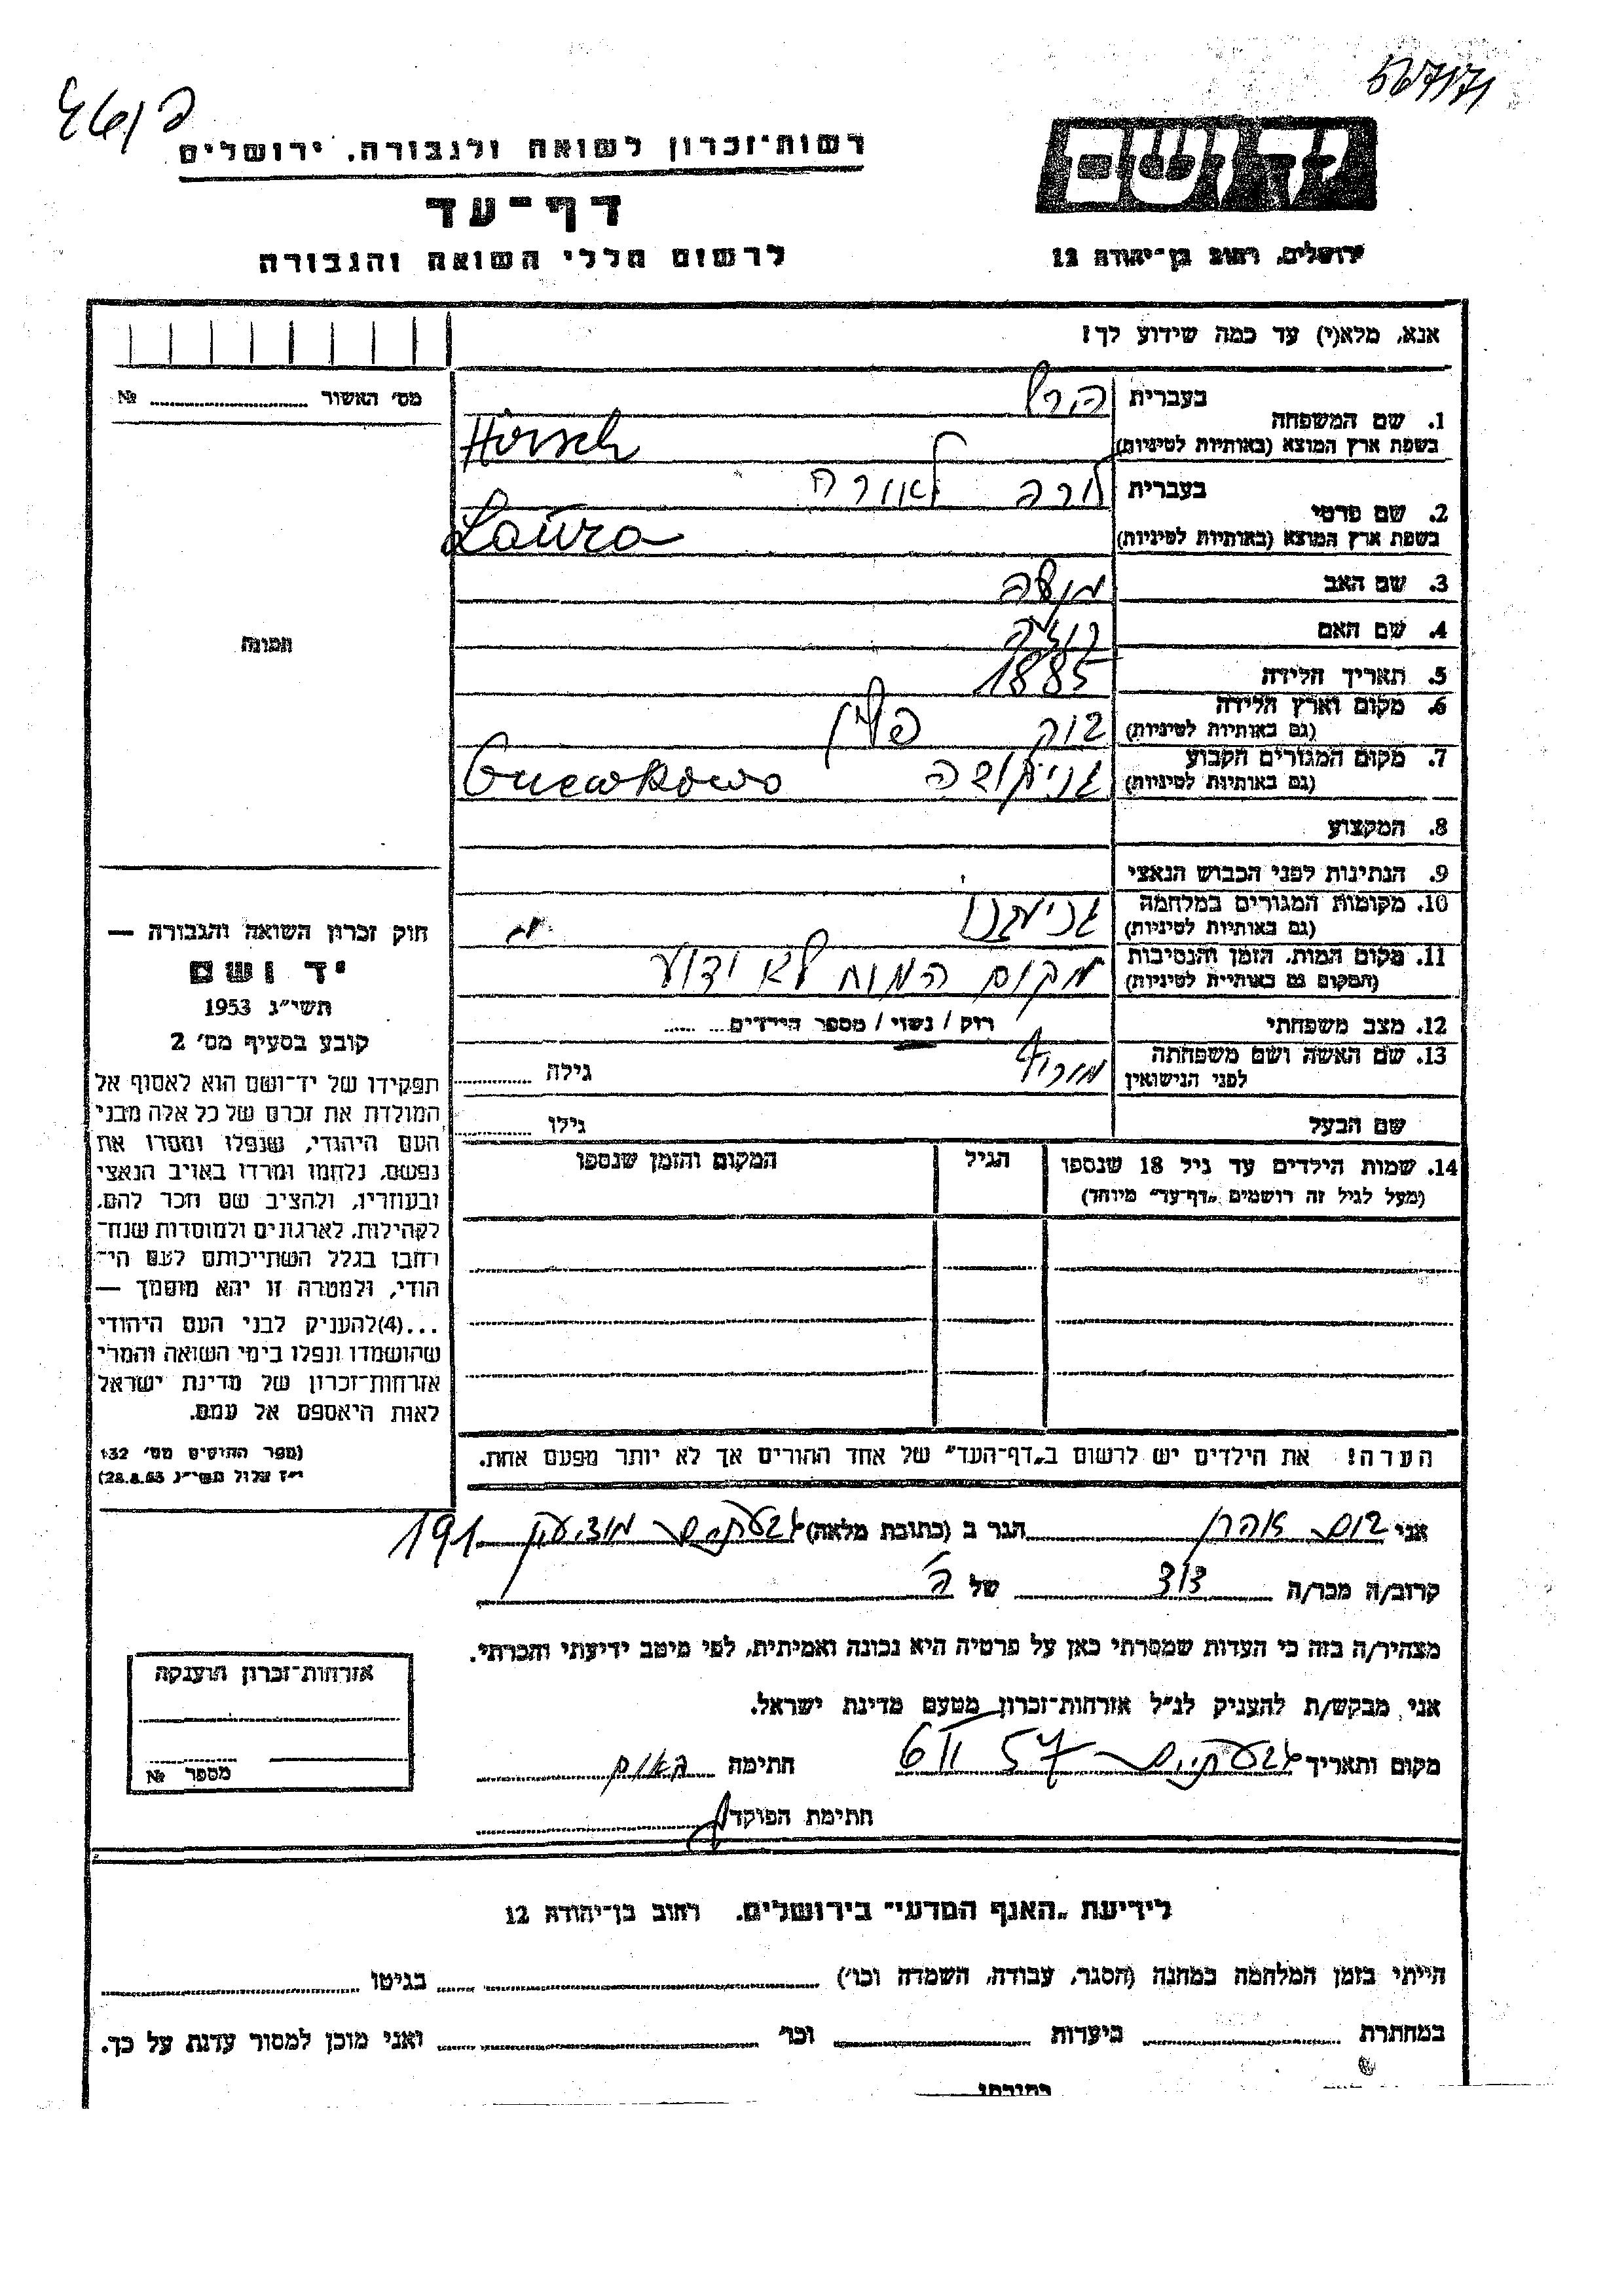 רשות־זכרון לשואה ולגבורה, ירושלים
דף־עד
לרשום חללי השואה והגבורה
יד ושם
ירושלים, רחוב בן־יהודה 12
אנא, מלא(י) עד כמה שידוע לך!
מס' האשור № 
1. שם המשפחה
בעברית
בשפת ארץ המוצא (באותיות לטיניות) Hirsch
2. שם פרטי
בעברית לורה לאורה
בשפת ארץ המוצא (באותיות לטיניות) Laura
3. שם האב
4. שם האם רוזה
5. תאריך הלידה 1885
6. מקום וארץ הלידה
(גם באותיות לטיניות) פולין
7. מקום המגורים הקבוע
(גם באותיות לטיניות) Gnewkowo
8. המקצוע
9. הנתינות לפני הכבוש הנאצי
10. מקומות המגורים במלחמה
(גם באותיות לטיניות)
11. מקום המות, הזמן והנסיבות
(המקום גם באותיית לטיניות) מקום המות לא ידוע
12. מצב משפחתי רוק / נשוי / מספר הילדים
13. שם האשה ושם משפחתה
לפני הנישואין גילה
שם הבעל גילו
14. שמות הילדים עד גיל 18 שנספו הגיל המקום והזמן שנספו
(מעל לגיל זה רושמים „דף־עד" מיוחד)
הערה: את הילדים יש לרשום ב„דף־העד" של אחד ההורים אך לא יותר מפעם אחת.
תמונה
חוק זכרון השואה והגבורה —
יד ושם
תשי״ג 1953
קובע בסעיף מס' 2
תפקידו של יד־ושם הוא לאסוף אל
המולדת את זכרם של כל אלה מבני
העם היהודי, שנפלו ומסרו את
נפשם, נלחמו ומרדו באויב הנאצי
ובעוזריו, ולהציב שם וזכר להם,
לקהילות, לארגונים ולמוסדות שנח־
רחבו בגלל השתייכותם לעם הי־
הודי, ולמטרה זו יהא מוסמך —
...(4)להעניק לבני העם היהודי
שהושמדו ונפלו בימי השואה והמרי
אזרחות־זכרון של מדינת ישראל
לאות היאספם אל עמם.
(ספר החוקים מס' 132
י״ז אלול תשי״ג 28.8.53)
אני אהרן הגר ב (כתובת מלאה) גבעתיים 191
קרוב/ה מכר/ה דוד של ה
מצהיר/ה בזה כי העדות שמסרתי כאן על פרטיה היא נכונה ואמיתית, לפי מיטב ידיעתי והכרתי.
אני מבקש/ת להעניק לנ״ל אזרחות־זכרון מטעם מדינת ישראל.
מקום ותאריך גבעתיים 6 II 57 חתימה
חתימת הפוקד
אזרחות־זכרון הוענקה
מספר №
לידיעת „האגף המדעי" בירושלים, רחוב בן־יהודה 12
הייתי בזמן המלחמה במחנה (הסגר, עבודה, השמדה וכו') בגיטו
במחתרת ביערות וכו' ואני מוכן למסור עדות על כך.